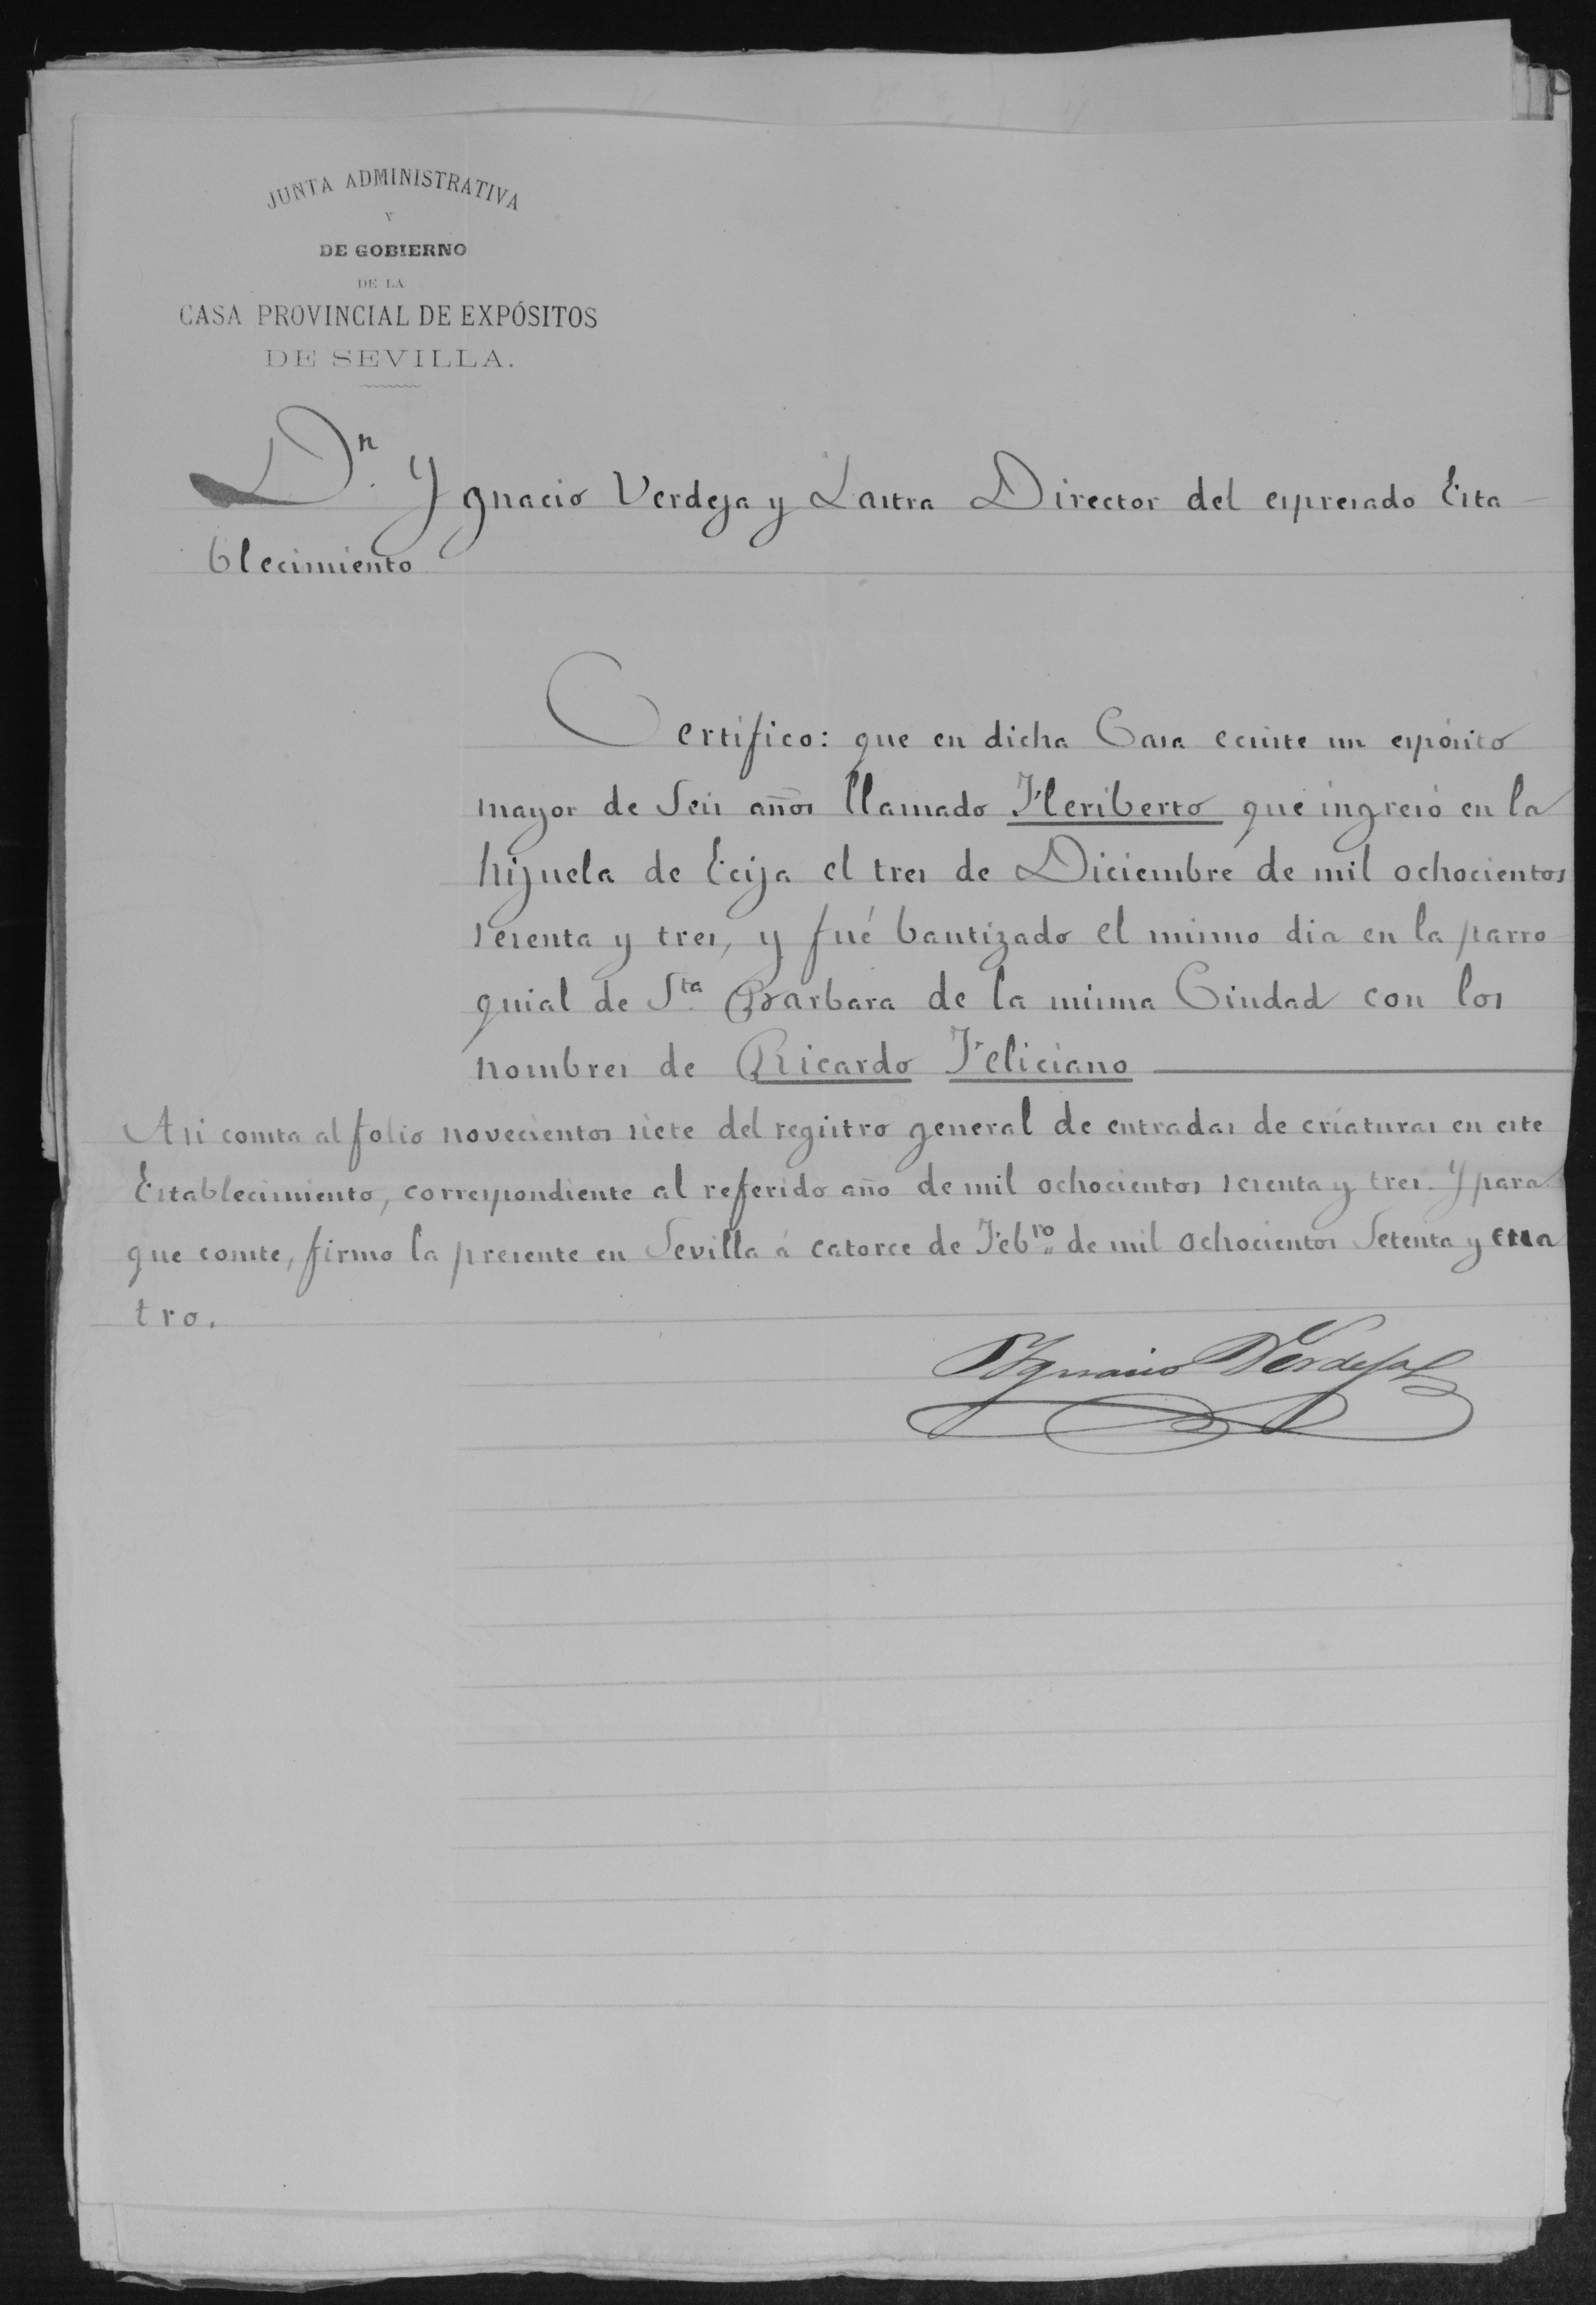 JUNTA ADMINISTRATIVA
Y
DE GOBIERNO
DE LA
CASA PROVINCIAL DE EXPÓSITOS
DE SEVILLA.
Dn. Ygnacio Verdeja y Lastra Director del espresado Esta
blecimiento
Certifico: que en dicha Casa ecsiste un espósito
mayor de Seis años llamado Heriberto que ingresó en la
hijuela de Ecija el tres de Diciembre de mil ochocientos
sesenta y tres, y fué bautizado el mismo dia en la parro
quial de Sta. Barbara de la misma Ciudad con los
nombres de Ricardo Feliciano
Asi consta al folio novecientos siete del registro general de entradas de criaturas en este
Establecimiento, correspondiente al referido año de mil ochocientos sesenta y tres. Y para
que conste, firmo la presente en Sevilla á catorce de Febro. de mil ochocientos Setenta y cua
tro.
Ygnacio Verdeja